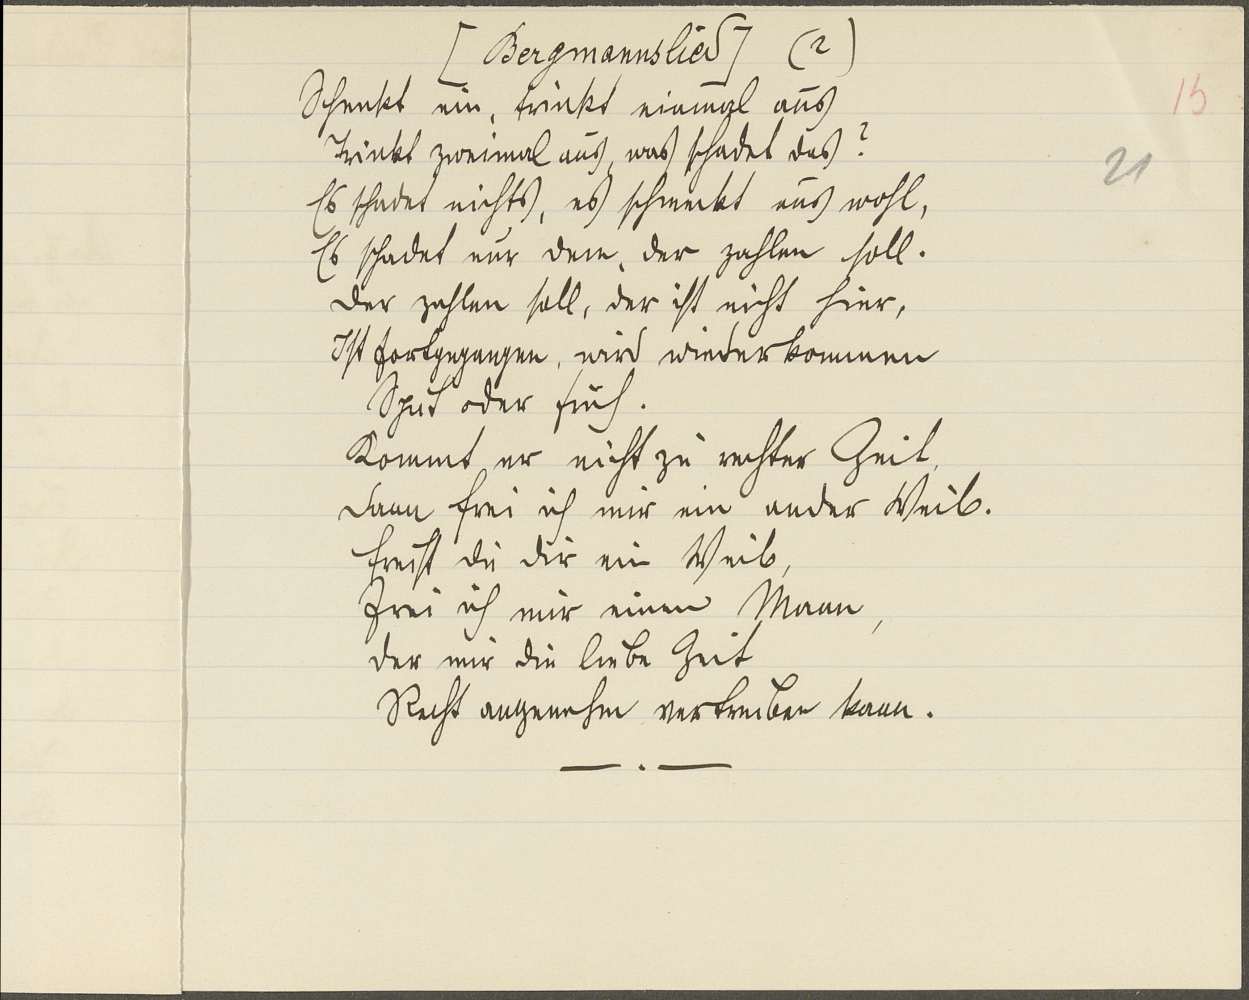 [Bergmannslied] (2)
15
Schenkt ein, trinkt einmal aus
21
Trinkt zweimal aus, was schadet das?
Es schadet nichts, es schmeckt uns wohl,
Es schadet nur dem, der zahlen soll.
Der zahlen soll, der ist nicht hier,
Ist fortgegangen, wird wiederkommen
Spät oder früh.
Kommt er nicht zu rechter Zeit,
Dann frei ich mir ein ander Weib.
Freist du dir ein Weib,
Frei ich mir einen Mann,
Der mir die liebe Zeit
Recht angenehm vertreiben kann.